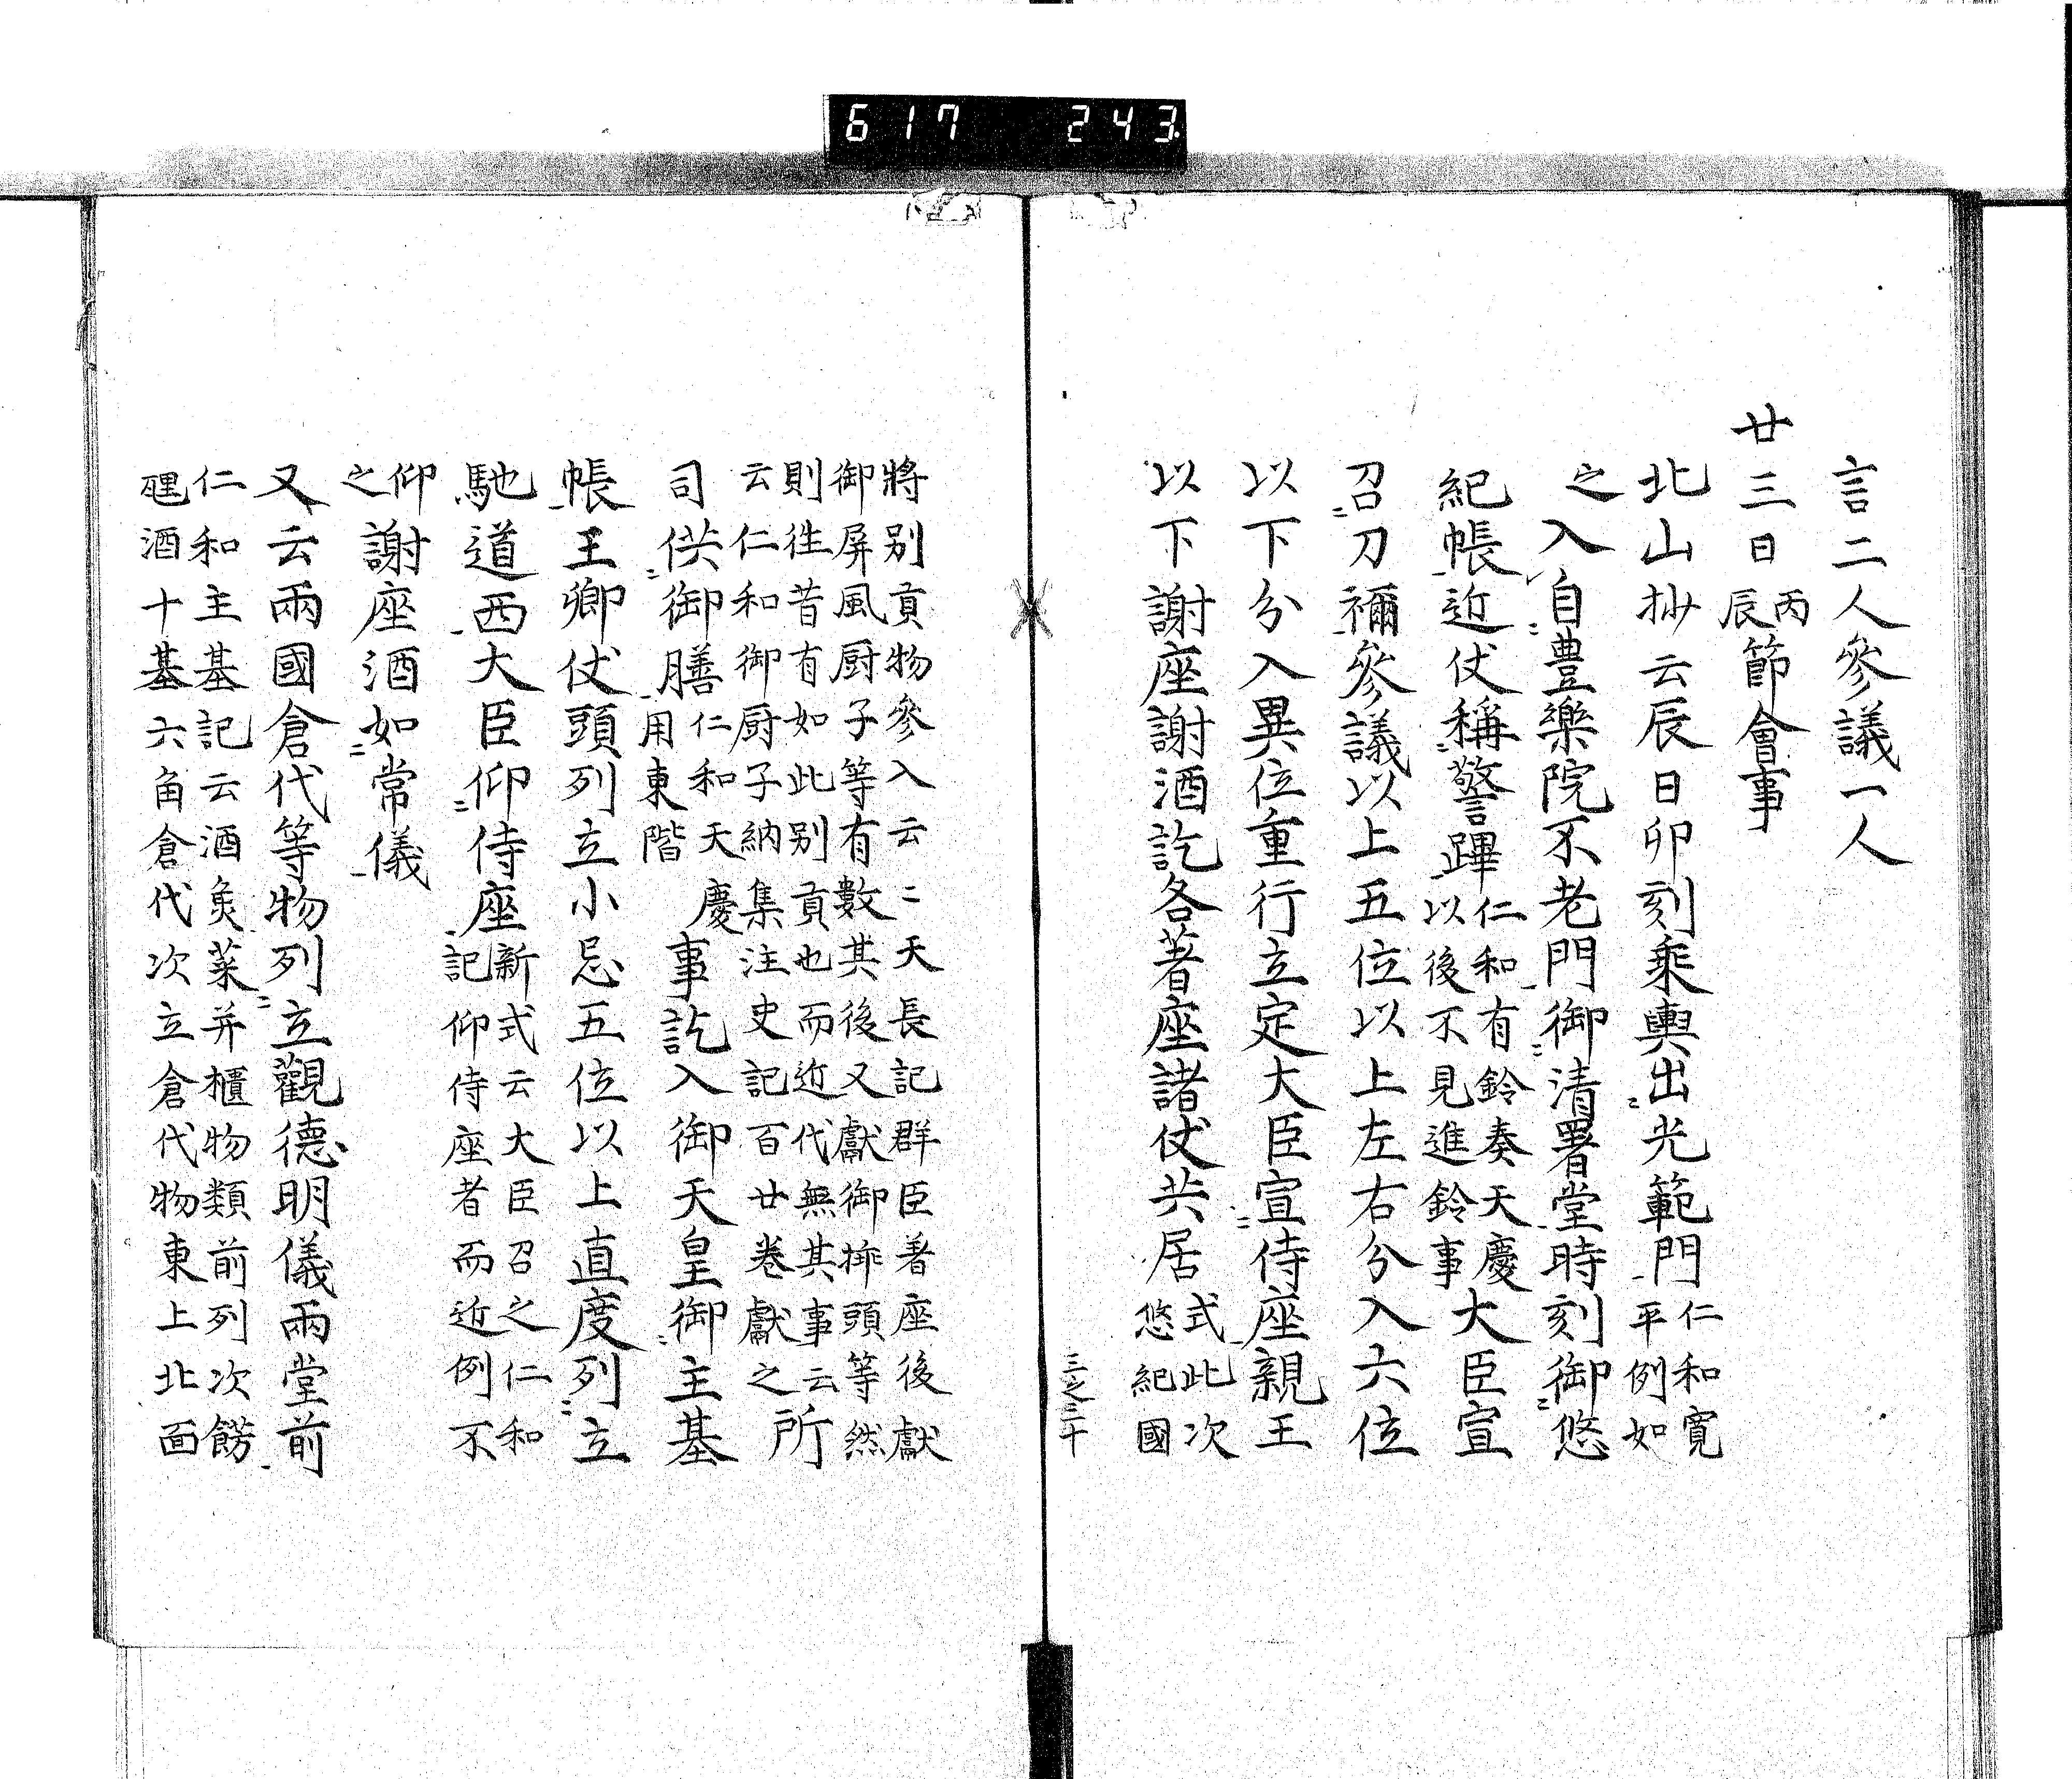 617 243
言二人參議一人
廿三日丙辰節會事
北山抄云辰日卯刻乘輿出光範門仁和寛平例如
之入自豊樂院不老門御清署堂時刻御悠
紀帳近仗稱警蹕仁和有鈴奏天慶以後不見進鈴事大臣宣
召刀禰參議以上五位以上左右分入六位
以下分入異位重行立定大臣宣侍座親王
以下謝座謝酒訖各著座諸仗共居式此次悠紀國
三之三十
將別貢物參入云〻天長記群臣著座後獻
御屏風厨子等有數其後又獻御挿頭等然
則徃昔有如此別貢也而近代無其事云
云仁和御厨子納集注史記百廿巻獻之所
司供御膳仁和天慶用東階事訖入御天皇御主基
帳王卿仗頭列立小忌五位以上直度列立
馳道西大臣仰侍座新式云大臣召之仁和記仰侍座者而近例不
仰之謝座酒如常儀
又云兩國倉代等物列立觀德明儀兩堂前
仁和主基記云酒魚菜并櫃物類前列次餝
𤭖酒十基六角倉代次立倉代物東上北面